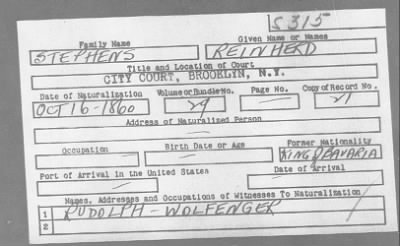 S315
Family Name Given Name or Names
STEPHENS REINHERD
Title and Location of Court
CITY COURT, BROOKLYN, N.Y.
Date of Naturalization Volume or Bundle No. Page No. Copy of Record No.
OCT 16-1860 29 — 21
Address of Naturalized Person
—
Occupation Birth Date or Age Former Nationality
— — KING of BAVARIA
Port of Arrival in the United States Date of Arrival
— —
Names, Addresses, and Occupations of Witnesses To Naturalization
1 RUDOLPH - WOLFENGER
2